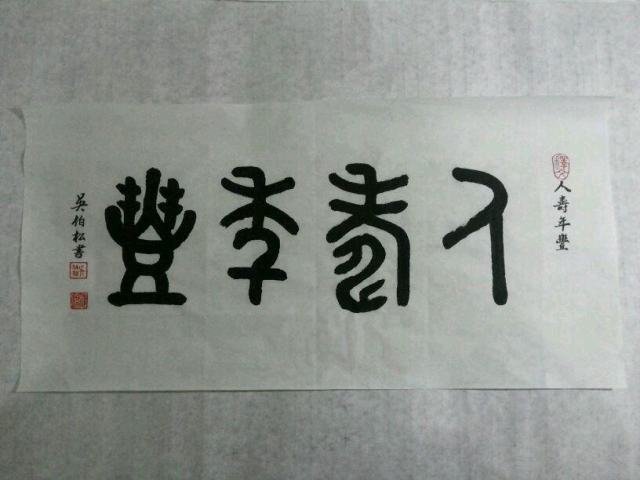 釋文
人壽年豐
人壽年豐
吳伯松書